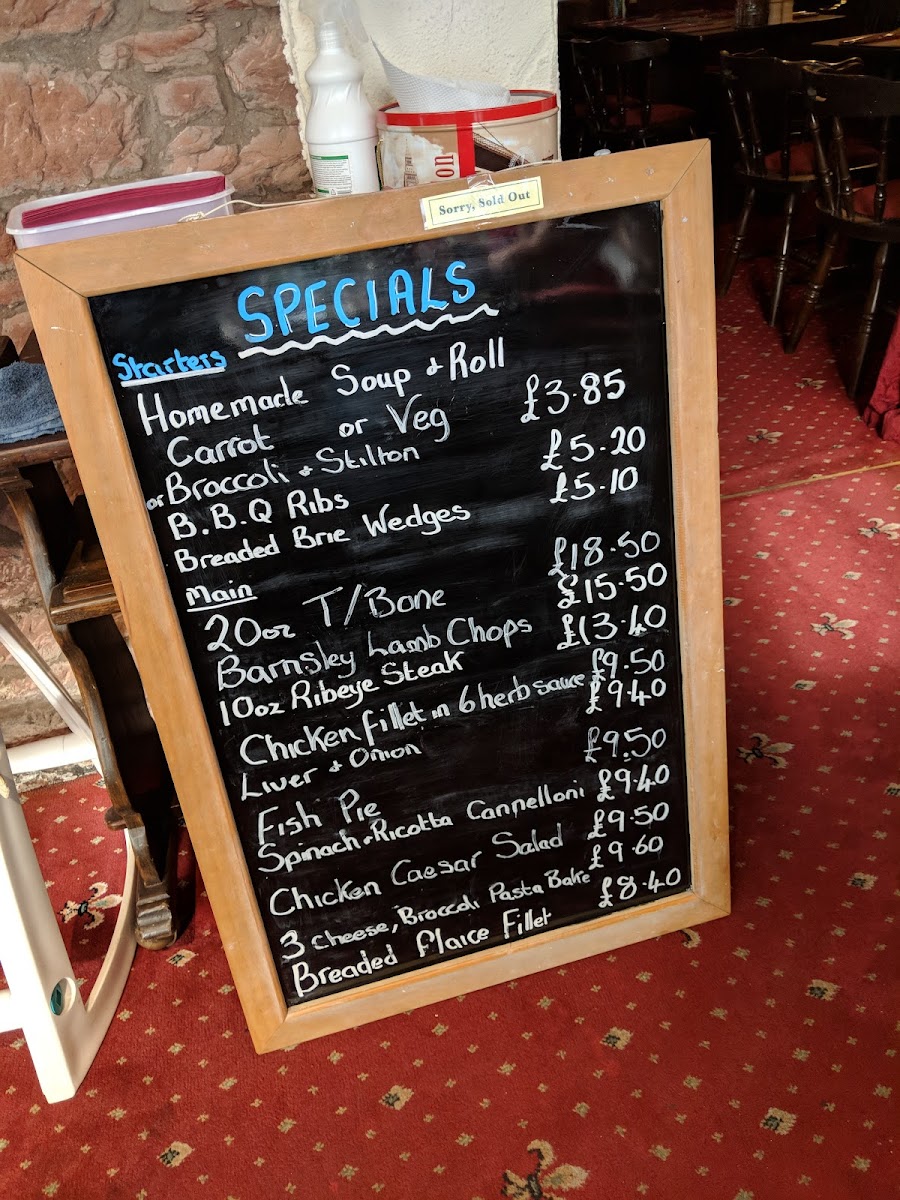 Sorry, Sold Out
SPECIALS
Starters
Homemade Soup & Roll
Carrot or Veg £3.85
or Broccoli & Stilton
B.B.Q Ribs £5.20
Breaded Brie Wedges £5.10
Main
20oz T/Bone £18.50
Barnsley Lamb Chops £15.50
10oz Ribeye Steak £13.40
Chicken fillet in 6 herb sauce £9.50
Liver & Onion £9.40
Fish Pie £9.50
Spinach & Ricotta Cannelloni £9.40
Chicken Caesar Salad £9.50
3 Cheese, Broccoli Pasta Bake £9.60
Breaded Plaice Fillet £8.40
on